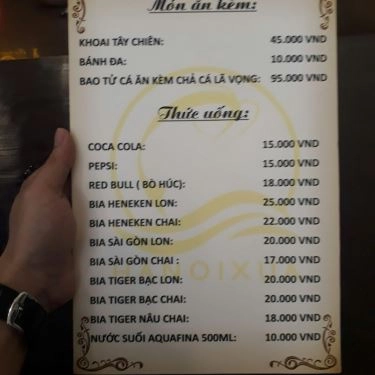 Món ăn kèm:
KHOAI TÂY CHIÊN: 45.000 VND
BÁNH ĐA: 10.000 VND
BAO TỬ CÁ ĂN KÈM CHẢ CÁ LÃ VỌNG: 95.000 VND
Thức uống:
COCA COLA: 15.000 VND
PEPSI: 15.000 VND
RED BULL ( BÒ HÚC): 18.000 VND
BIA HENEKEN LON: 25.000 VND
BIA HENEKEN CHAI: 22.000 VND
BIA SÀI GÒN LON: 20.000 VND
BIA SÀI GÒN CHAI : 17.000 VND
HANOIXUA
BIA TIGER BẠC LON: 20.000 VND
BIA TIGER BẠC CHAI: 20.000 VND
BIA TIGER NÂU CHAI: 18.000 VND
NƯỚC SUỐI AQUAFINA 500ML: 10.000 VND